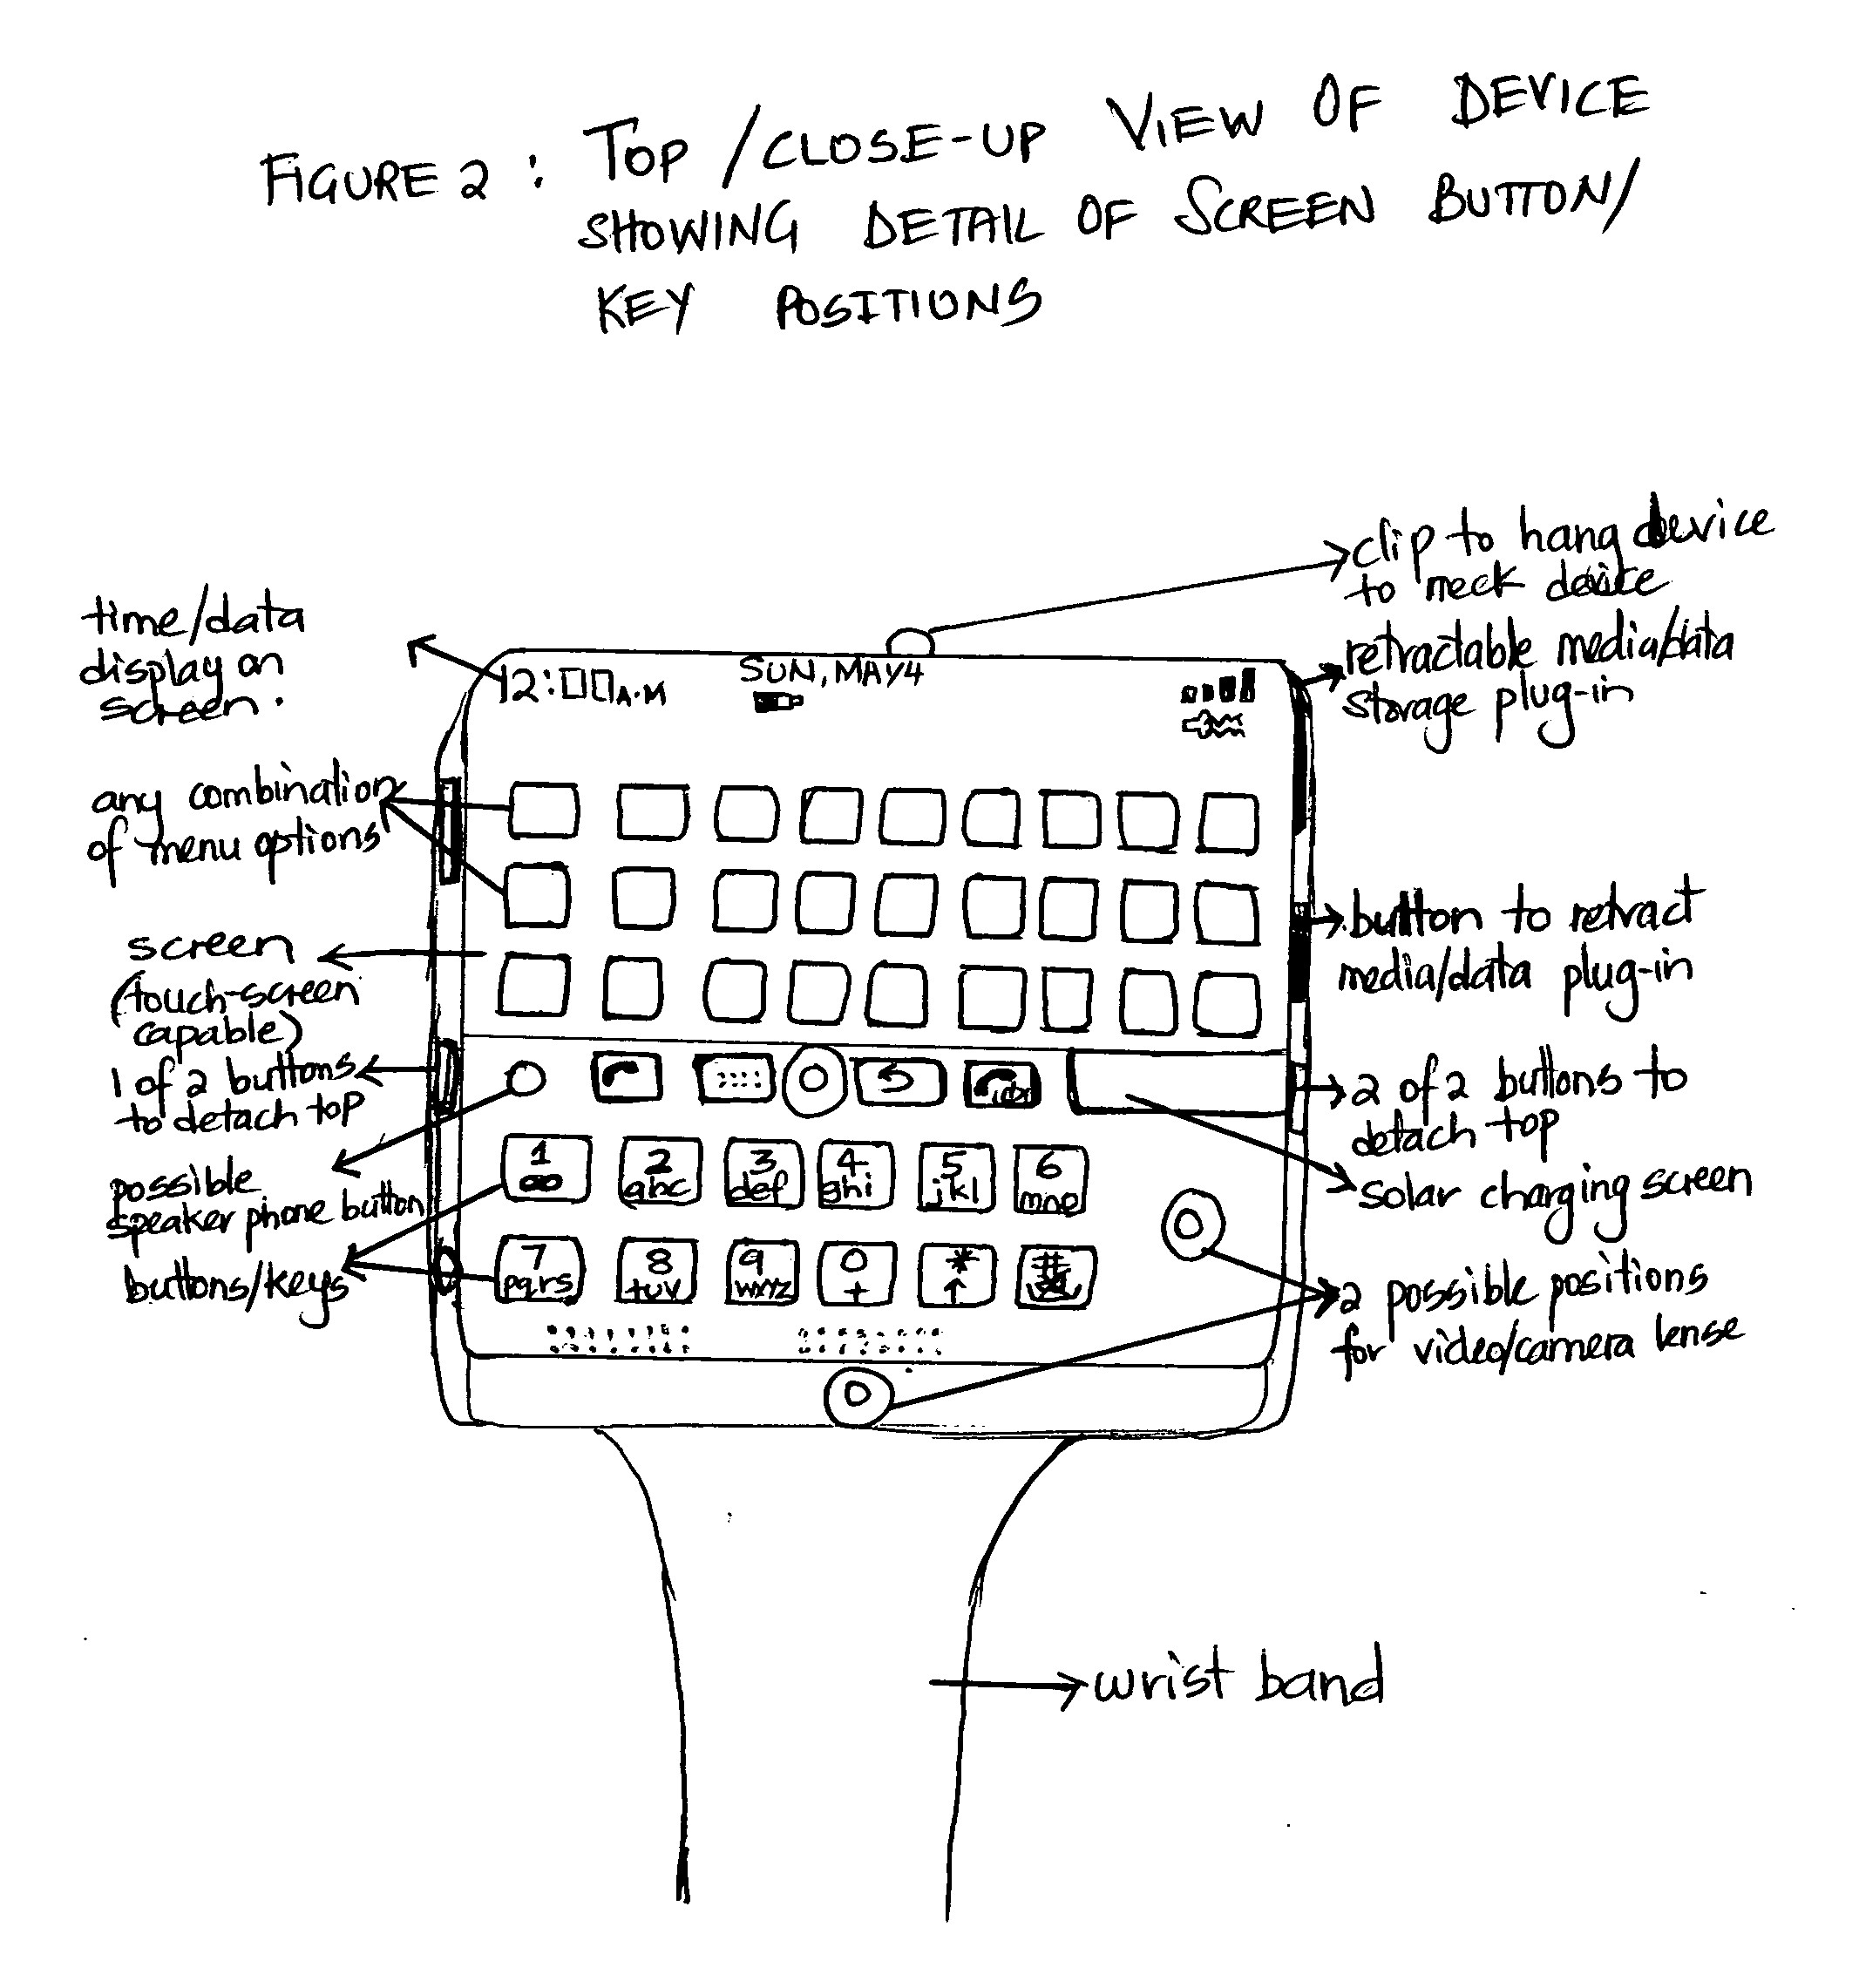 FIGURE 2 : TOP / CLOSE-UP VIEW OF DEVICE
SHOWING DETAIL OF SCREEN BUTTON/
KEY POSITIONS
clip to hang device
to neck device
time/data
display on
screen.
retractable media/data
storage plug-in
12:00 A.M
SUN, MAY 4
any combination
of menu options
button to retract
media/data plug-in
screen
(touch-screen
capable)
1 of 2 buttons
to detach top
2 of 2 buttons to
detach top
solar charging screen
possible
speaker phone button
buttons/keys
1
2
abc
3
def
4
ghi
5
jkl
6
mno
7
pqrs
8
tuv
9
wxyz
0
+
*
#
2 possible positions
for video/camera lense
wrist band